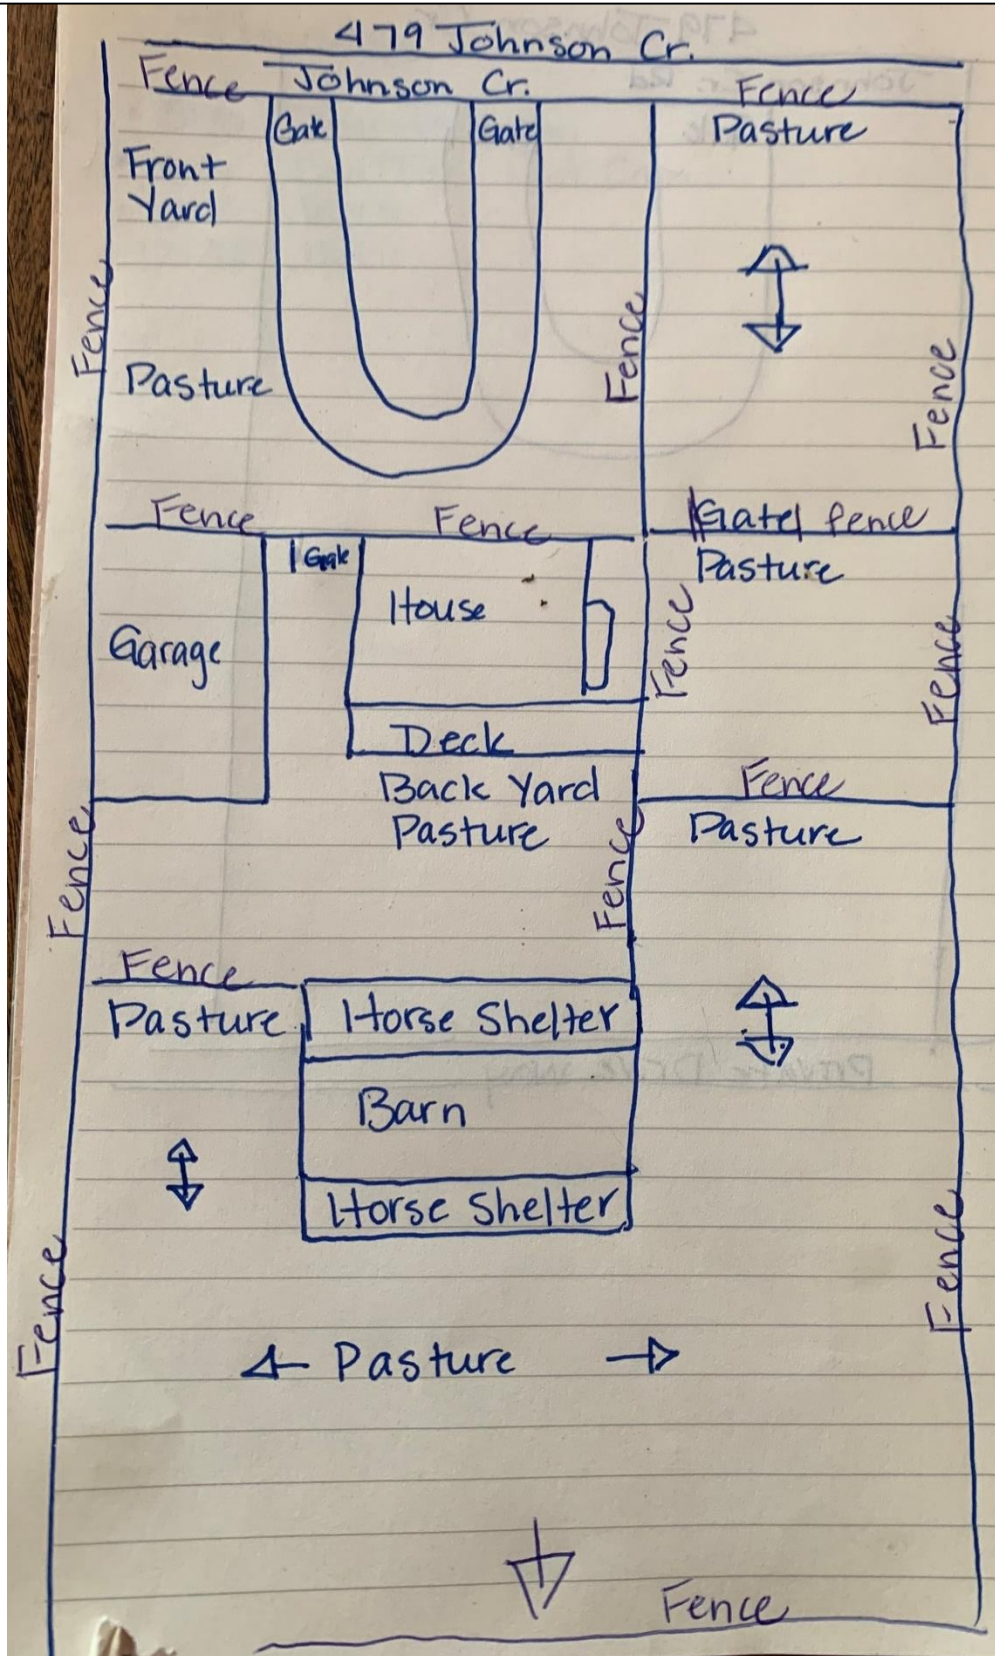 479 Johnson Cr.
Fence Johnson Cr. Fence
Gate Gate Pasture
Front
Yard
Fence
Fence
Fence
Pasture
Fence Fence Gate fence
Gate Pasture
House
Garage
Fence
Fence
Deck
Back Yard Fence
Pasture Pasture
Fence
Fence
Fence
Pasture Horse Shelter
Barn
Horse Shelter
Fence
Fence
Pasture
Fence